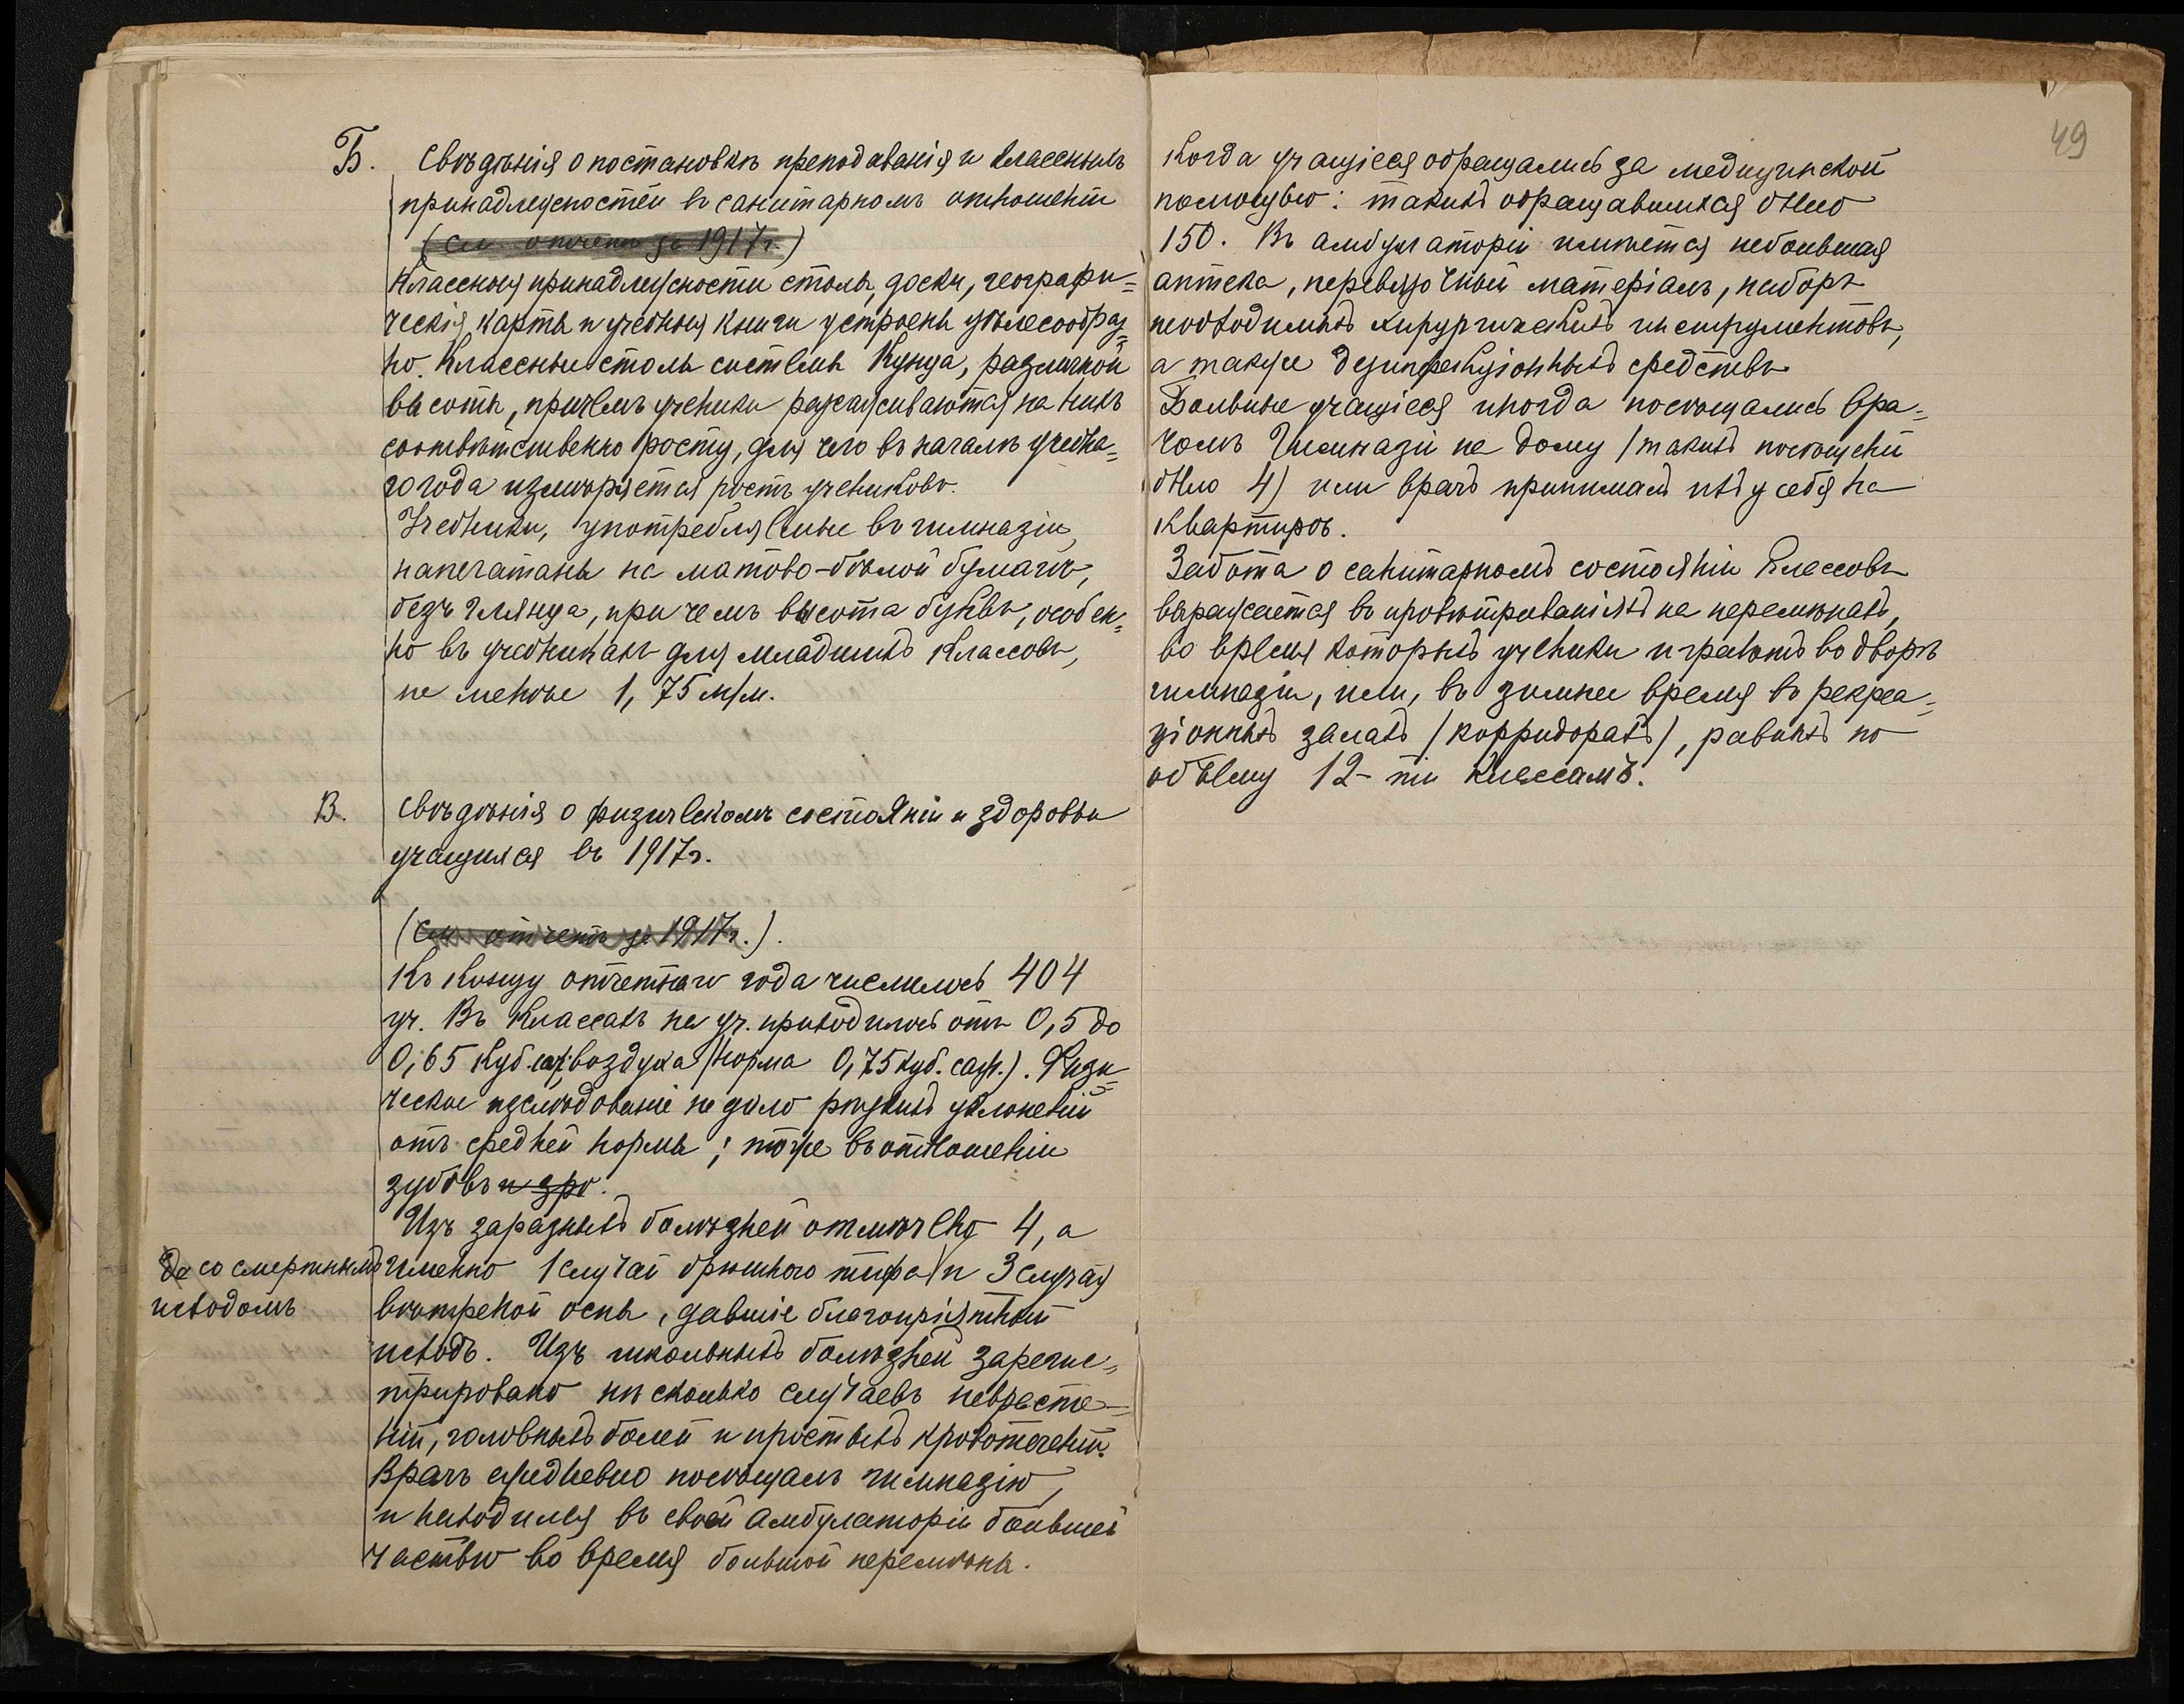 Б. Свѣдѣнія о постановкѣ преподаванія и классныхъ
принадлежностей въ санитарномъ отношеніи
(см. отчетъ за 1917 г.)
Классныя принадлежности столы, доски, географи=
ческія карты и учебныя книги устроены цѣлесообраз=
но. Классные столы системы Кунца, различной
высоты, причемъ ученики разсаживаются на нихъ
соотвѣтственно росту, для чего въ началѣ учебна=
го года измѣряется ростъ учениковъ.
Учебники, употребляемые въ гимназіи,
напечатаны на матово-бѣлой бумагѣ,
безъ глянца, при чемъ высота буквъ, особен=
но въ учебникахъ для младшихъ классовъ,
не менѣе 1,75 м/м.
В. Свѣдѣнія о физическомъ состояніи и здоровьи
учащихся въ 1917 г.
(см. отчетъ за 1917 г.).
Къ концу отчетнаго года числилось 404
уч. Въ классахъ на уч. приходилось отъ 0,5 до
0,65 куб. саж. воздуха (норма 0,75 куб. саж.). Физи=
ческое изслѣдованіе не дало рѣзкихъ уклоненій
отъ средней нормы; тоже въ отношеніи
зубовъ и зрѣ.
Изъ заразныхъ болѣзней отмѣчено 4, а
именно 1 случай брюшного тифа и 3 случая
со смертнымъ
исходомъ
вѣтреной оспы, давшіе благопріятный
исходъ. Изъ школьныхъ болѣзней зарегис=
трировано нѣсколько случаевъ неврасте=
ніи, головныхъ болей и простыхъ кровотеченій.
Врачъ ежедневно посѣщалъ гимназію,
и находился въ своей амбулаторіи большей
частью во время большой перемѣны.
49
когда учащіеся обращались за медицинской
помощью: такихъ обращавшихся было
150. Въ амбулаторіи имѣется небольшая
аптека, перевязочный матеріалъ, наборъ
необходимыхъ хирургическихъ инструментовъ,
а также дезинфекціонныхъ средствъ
Больные учащіеся иногда посѣщались вра=
чомъ Гимназіи на дому (такихъ посѣщеній
было 4) или врачъ принималъ ихъ у себя на
квартирѣ.
Забота о санитарномъ состояніи классовъ
выражается въ провѣтриваніяхъ на перемѣнахъ,
во время которыхъ ученики играютъ во дворѣ
гимназіи, или, въ зимнее время въ рекреа=
ціонныхъ залахъ (корридорахъ), равныхъ по
объему 12-ти классамъ.